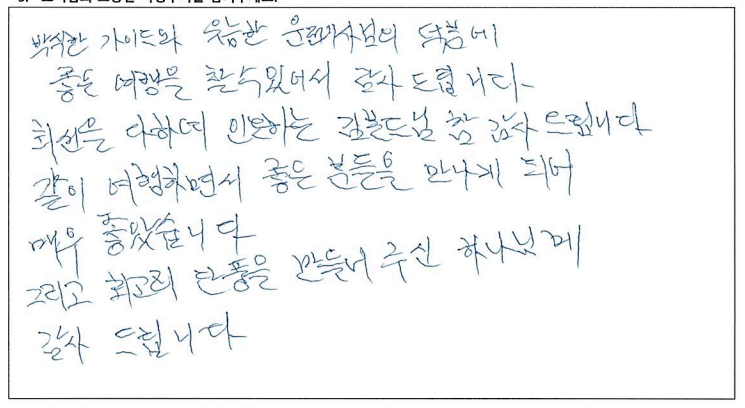 박식한 가이드와 유능한 운전기사님의 덕분에
좋은 여행을 할수있어서 감사 드립니다-
최선을 다하여 인도하는 감사 드립니다
같이 여행하면서 좋은 분들을 만나게 되어
매우 좋았습니다
그리고 최고의 단풍을 만들어 주신 하나님께
감사 드립니다